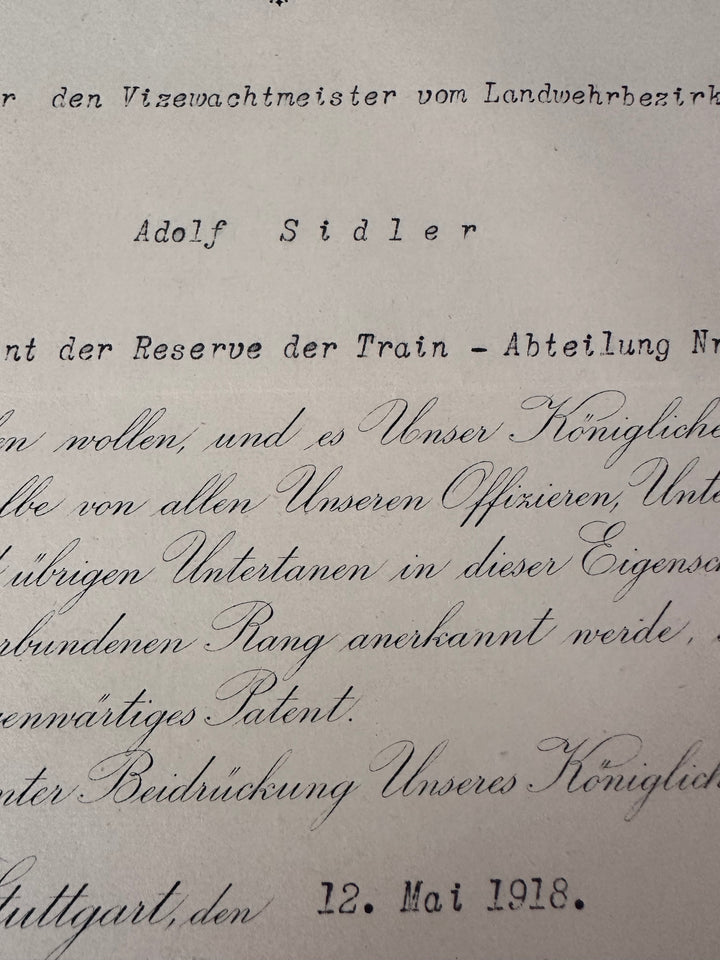 r den Vizewachtmeister vom Landwehrbezirk
Adolf Sidler
nt der Reserve der Train - Abteilung Nr
en wollen, und es Unser Königliche
lbe von allen Unseren Offizieren, Unte
übrigen Untertanen in dieser Eigensch
rbundenen Rang anerkannt werde,
enwärtiges Patent.
nter Beidrückung Unseres Königlich
Stuttgart, den 12. Mai 1918.